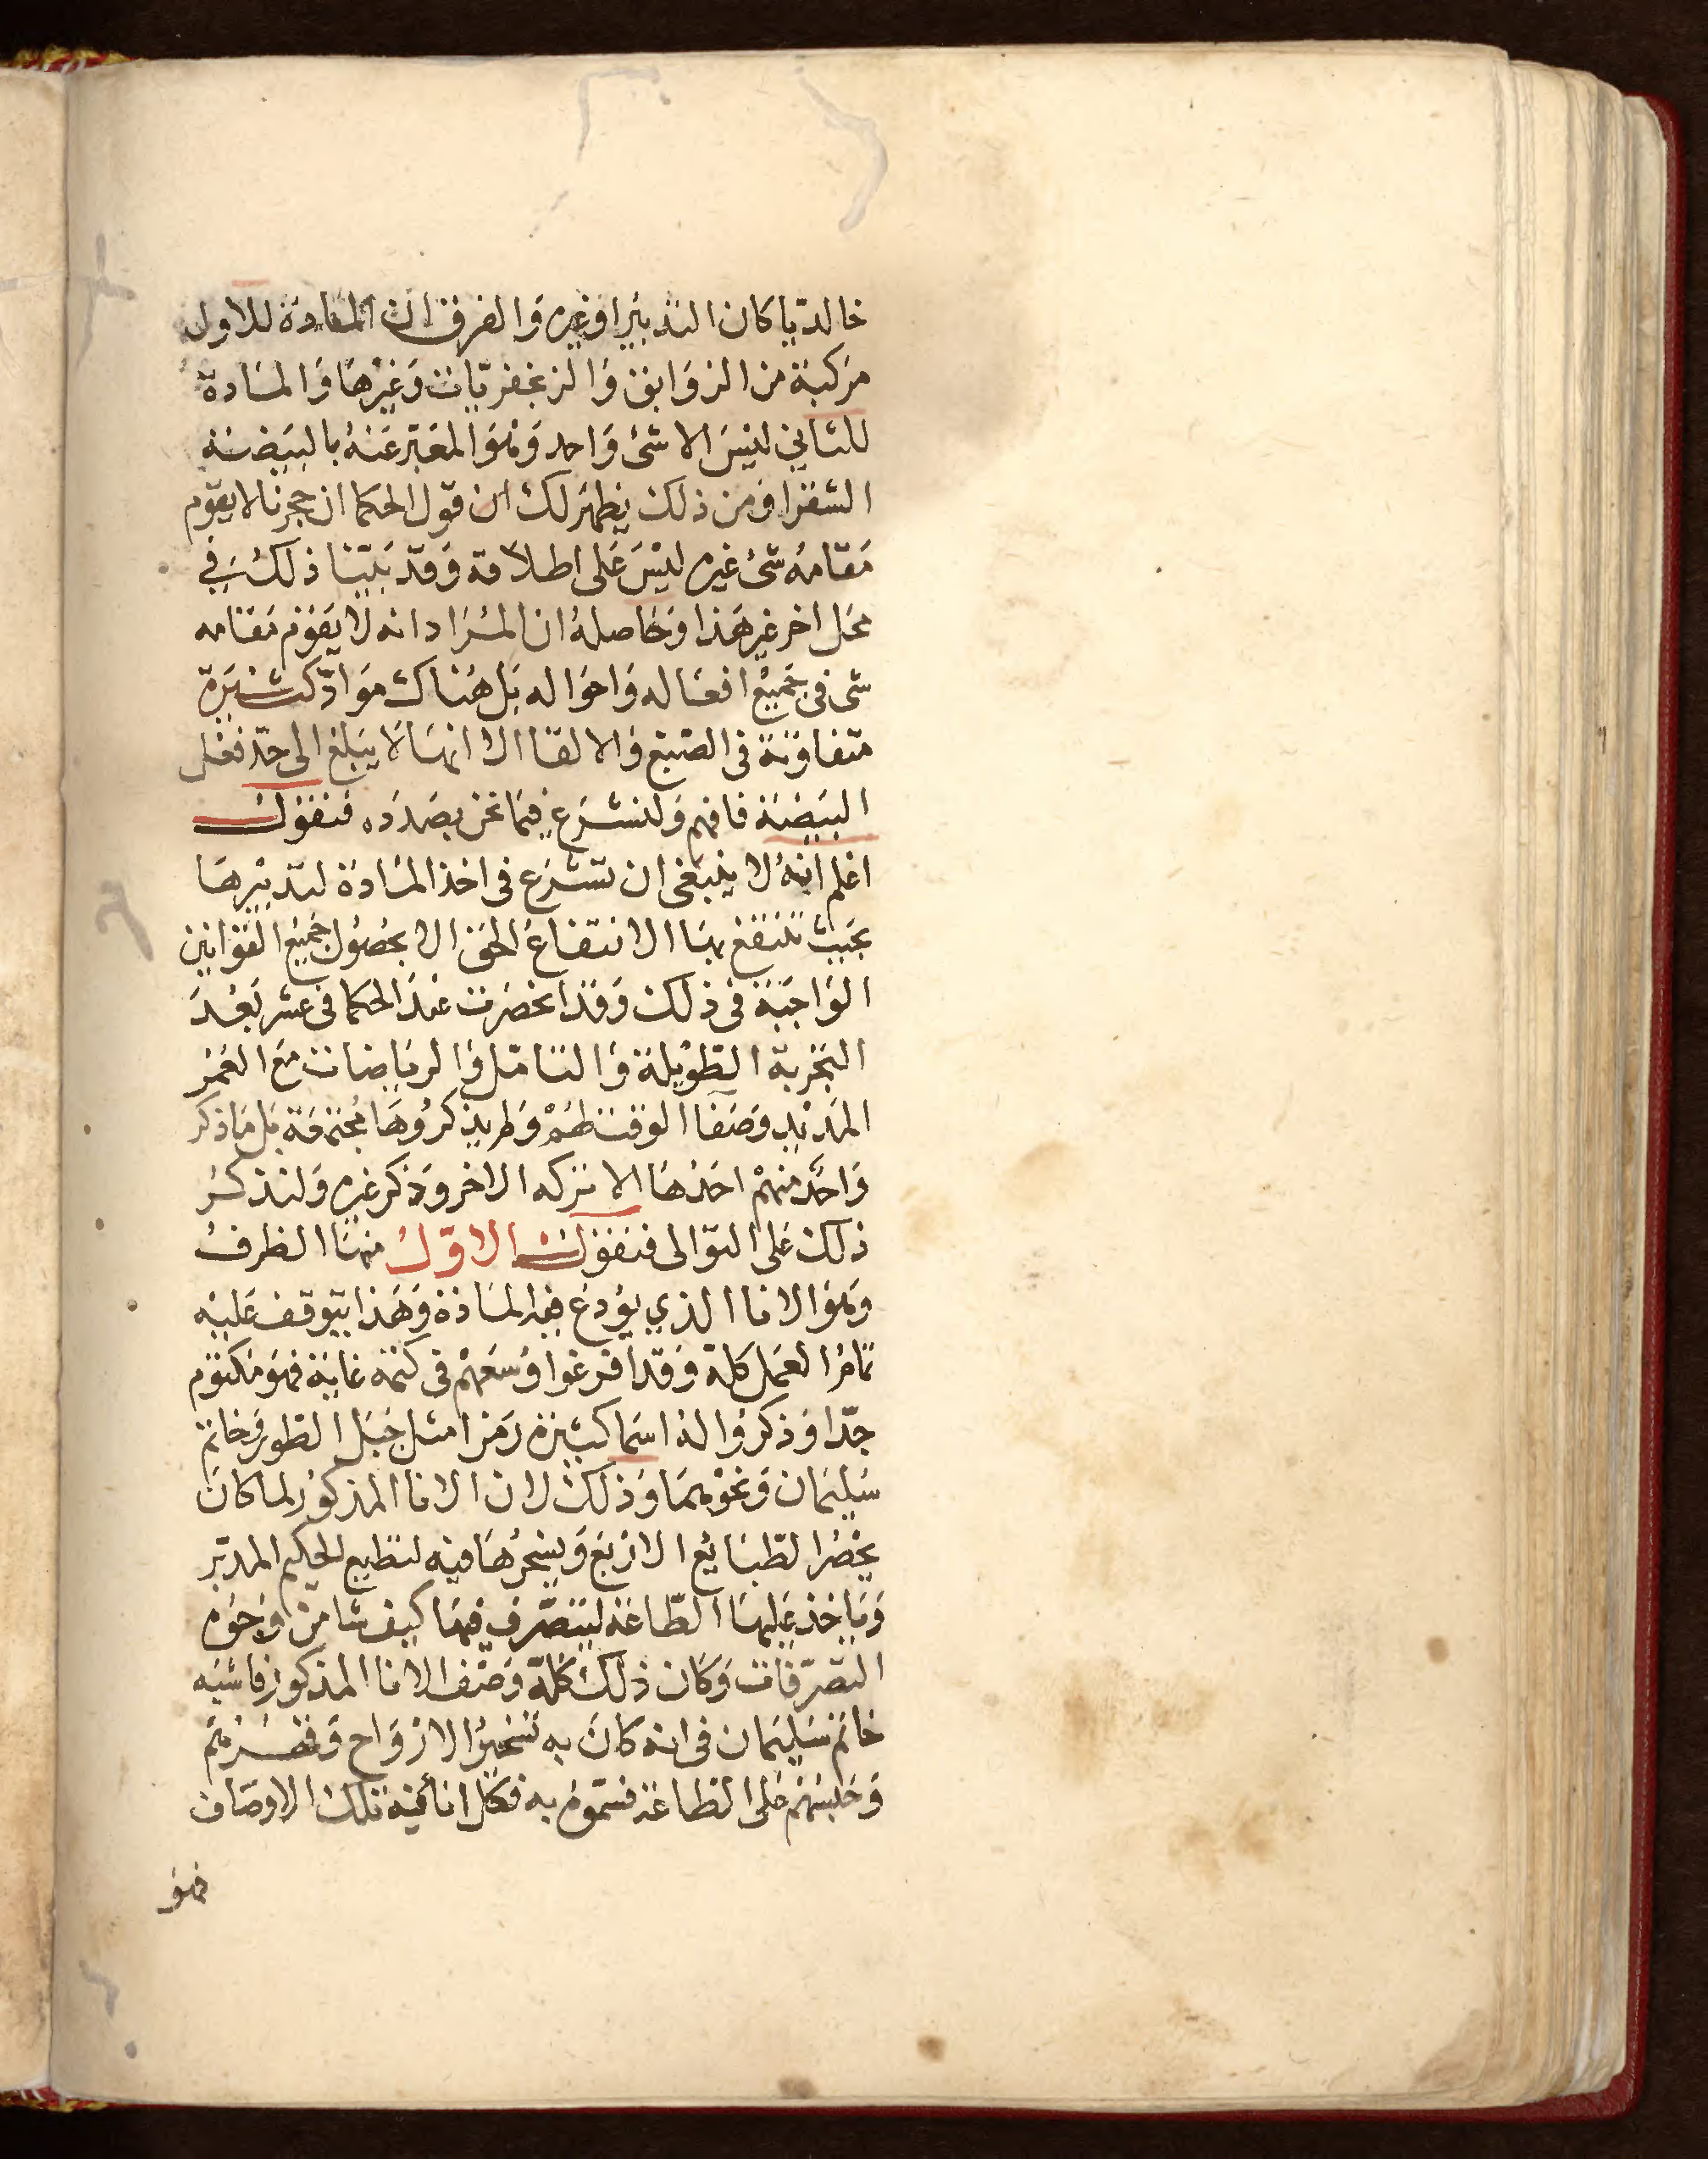 خالديا كان التدبير او غيره وَالفرق ان المَادة للاول
مركبة من الزوَابق وَالزنجفريّات وَغيْرهَا وَالمادة
للثاني ليْسَ الا شئ وَاحد وَهوَ المعَبّر عَنهُ بالبيَضة
الشقرا وَمن ذلك يظهَر لك ان قول الحكما ان حجرنا لا يقوم
مقامهُ شئ غيره ليْسَ عَلى اطلاقه وَقد بَيّنا ذلك فِي
محَل اخر غير هَذا وَحَاصلهُ ان المرَاد انه لا يقوم مَقامه
شى فى جَميْع افعَاله وَاحوَاله بَل هنَاك موَادّ كثيَرة
متفاوتة فى الصَبغ وَالالقا الا انهَا لا يبلغ الى حدّ فعْل
البيَضَة فافهم وَلنشرَع فيمَا نحن بصَدَده فنقول
اعْلم انهُ لا ينبغى ان تشرَع فى اخذ المَادة لتدبيْرهَا
بحيث تنتفع بهَا الانتفاعَ الحق الا بحصُول جَميْع القوَانين
الوَاجبَة فى ذلك وَقد انحصَرت عندَ الحكما فى عشر بَعْدَ
التجْربة الطّوْيلة وَالتامّل وَالرياضات مَع العُمْر
المَديد وَصَفا الوقت لهُمْ وَلم يذكرُوهَا مُجتمَعة بَل مَا ذكر
وَاحَد منهمْ احَدهَا الا تركه الاخر وَذكر غيره وَلنذكرُ
ذلك عَلى التوَالى فنقول الاوّلُ منهَا الظرفُ
وَهوَ الانا الذي يوُدعَ فيه المَادة وَهَذا يتوقف عَليْه
تمامُ العمَل كلهْ وَقد افرغوا وُسعَهمْ فى كتمه غايَة فهوَ مَكتوم
جدّا وَذكرُوا لهُ اسمَا كثيرَة رَمزا مثل جَبَل الطور وَخاتم
سُليمَان وَنحوْهمَا وَذلك لان الانا المذكوُر لما كان
يحْصُر الطّبَايُع الاربَع وَيسَخرُهَا فيه لتطيع الحكيم المدبّر
وَيَاخذ عَليهَا الطّاعَة ليتصَرف فيهَا كيف شا من وجُوه
التصَرّفات وَكان ذلك كلهْ وَصْف الانا المذكور فاشبَه
خاتم سُليمَان فى انه كانَ به تسخيْرُ الارْوَاح وَقسْرُهمْ
وَحَبسُهُمْ عَلى الطاعَة فسَمّوهُ به فكل انا فيْه تلك الاوصَاف
فهوَ